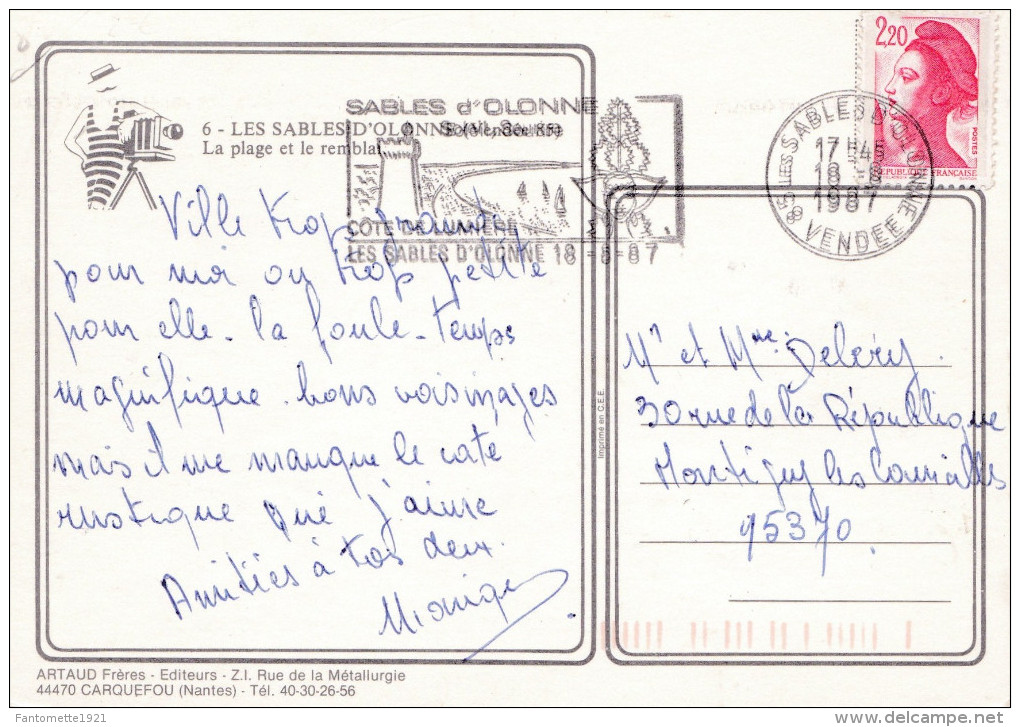 6 - LES SABLES D'OLONNE (Vendée 85)
La plage et le remblai
SABLES d'OLONNE
CÔTE DE LUMIÈRE
LES SABLES D'OLONNE 18-8-87
2,20
POSTES
REPUBLIQUE FRANÇAISE
85 LES SABLES D'OLONNE
17H4
18-8
1987
VENDEE
Ville trop grande
pour moi ou trop petite
pour elle. la foule. temps
magnifique. bons voisinages
mais il me manque le coté
rustique que j'aime
Amitiés à tos deux.
Monique
Imprimé en C.E.E.
Mr et Mme
30 rue de la République
Montigny les Cormeilles
95370
ARTAUD Frères - Editeurs - Z.I. Rue de la Métallurgie
44470 CARQUEFOU (Nantes) - Tél. 40-30-26-56
Fantomette1921
delcampe.net